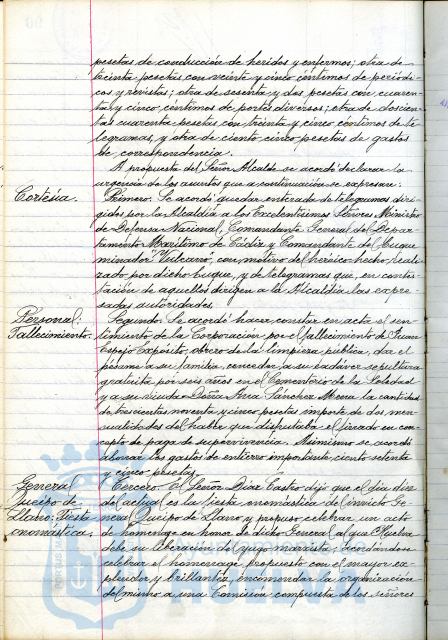 pesetas de conducción de heridos y enfermos; otra de
treinta pesetas con veinte y cinco céntimos de periódi-
cos y revistas; otra de sesenta y dos pesetas con cuaren-
ta y cinco céntimos de portes diversos; otra de doscien-
tas cuarenta pesetas con treinta y cinco céntimos de te
legramas, y otra de ciento cinco pesetas de gastos
de correspondencia.
A propuesta del Señor Alcalde se acordó declarar la
urgencia de los asuntos que a continuación se expresan:
Cortesía. Primero. Se acordó quedar enterada de telegramas diri
gidos por la Alcaldía a los Excelentísimos Señores Ministro
de Defensa Nacional, Comandante General del Depar-
tamento Marítimo de Cádiz y Comandante del Buque
minador "Vulcano", con motivo del heróico hecho reali-
zado por dicho buque, y de telegramas que, en contes-
tación de aquellos dirigen a la Alcaldía las expre-
sadas autoridades.
Personal: Segundo. Se acordó hacer constar en acta el sen-
Fallecimiento. timiento de la Corporación por el fallecimiento de Juan
Espejo Expósito, obrero de la limpieza pública, dar el
pésame a su familia, conceder a su cadáver sepultura
gratuita por seis años en el Cementerio de la Soledad
y a su viuda Doña Ana Sánchez Mena la cantidad
de trescientas noventa y cinco pesetas importe de dos men-
sualidades del haber que disfrutaba el finado en con-
cepto de paga de supervivencia. Asimismo se acordó
abonar los gastos de entierro importante ciento setenta
y cinco pesetas.
General Tercero. El Señor Díaz Castro dijo que el día diez
Queipo de del actual es la fiesta onomástica del invicto Ge-
Llano: Fiesta neral Queipo de Llano y propuso celebrar un acto
onomástica. de homenaje en honor de dicho General al que Huelva
debe su liberación del yugo marxista, acordándose
celebrar el homenaje propuesto con el mayor es-
plendor y brillantez, encomendar la organización
del mismo a una Comisión compuesta de los Señores
HUELVA